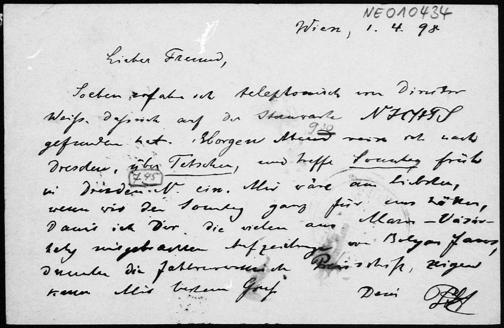 NE010434
Wien, 1. 4. 98
Lieber Freund,
Soeben erfahre ich telephonisch von Director
Weiss, dass ich auf der Sternwarte NICHTS
gefunden hat. Morgen Abend 9 10 reise ich nach
Dresden, über Tetschen, und treffe Sonntag früh
7.45
in Dresden-N ein. Mir wäre am liebsten,
wenn wir den Sonntag ganz für uns hätten,
damit ich Dir die vielen aus Maros-Vásár-
hely mitgebrachten Aufzeichnungen von Bolyai János,
darunter die
zeigen
kann. Mit bestem Gruß
Dein